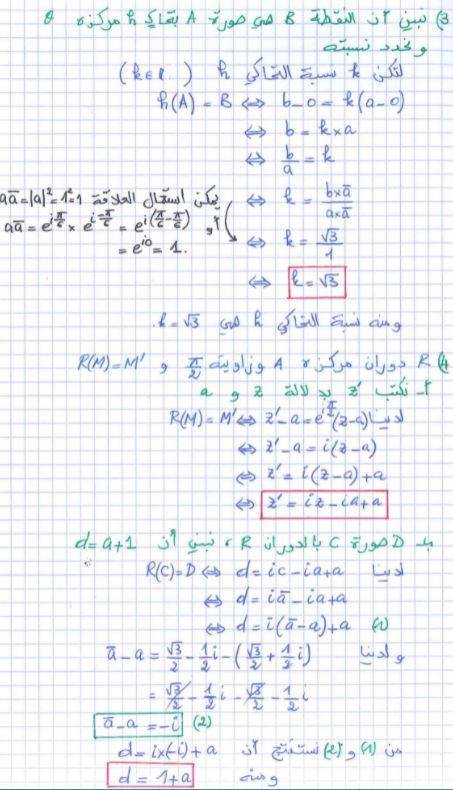 3) نبين أن النقطة B هي صورة A بتحاكي h مركزه O
ونحدد نسبته
لتكن k نسبة التحاكي h (k∈ℝ)
h(A) = B ⇔ b-o = k(a-o)
⇔ b = k×a
⇔ b/a = k
⇔ k = b×ā/a×ā
يمكن استعمال العلاقة aā=|a|²=1²=1
أو aā = e^(iπ/6) × e^(i-π/6) = e^(i(π/6-π/6))
= e^(i0) = 1.
⇔ k = √3/1
⇔ k = √3
ومنه نسبة التحاكي h هي k = √3.
4) R دوران مركزه A وزاويته π/2 و R(M)=M'
أ- نكتب z' بدلالة z و a
لدينا R(M)=M' ⇔ z'-a = e^(iπ/2)(z-a)
⇔ z'-a = i(z-a)
⇔ z' = i(z-a)+a
⇔ z' = iz-ia+a
بـ D صورة C بالدوران R، نبين أن d=a+1
لدينا R(C)=D ⇔ d = ic-ia+a
⇔ d = iā-ia+a
⇔ d = i(ā-a)+a (1)
ولدينا ā-a = √3/2 - 1/2 i - (√3/2 + 1/2 i)
= √3/2 - 1/2 i - √3/2 - 1/2 i
ā-a = -i (2)
من (1) و (2) نستنتج أن d = i×(-i)+a
ومنه d = 1+a